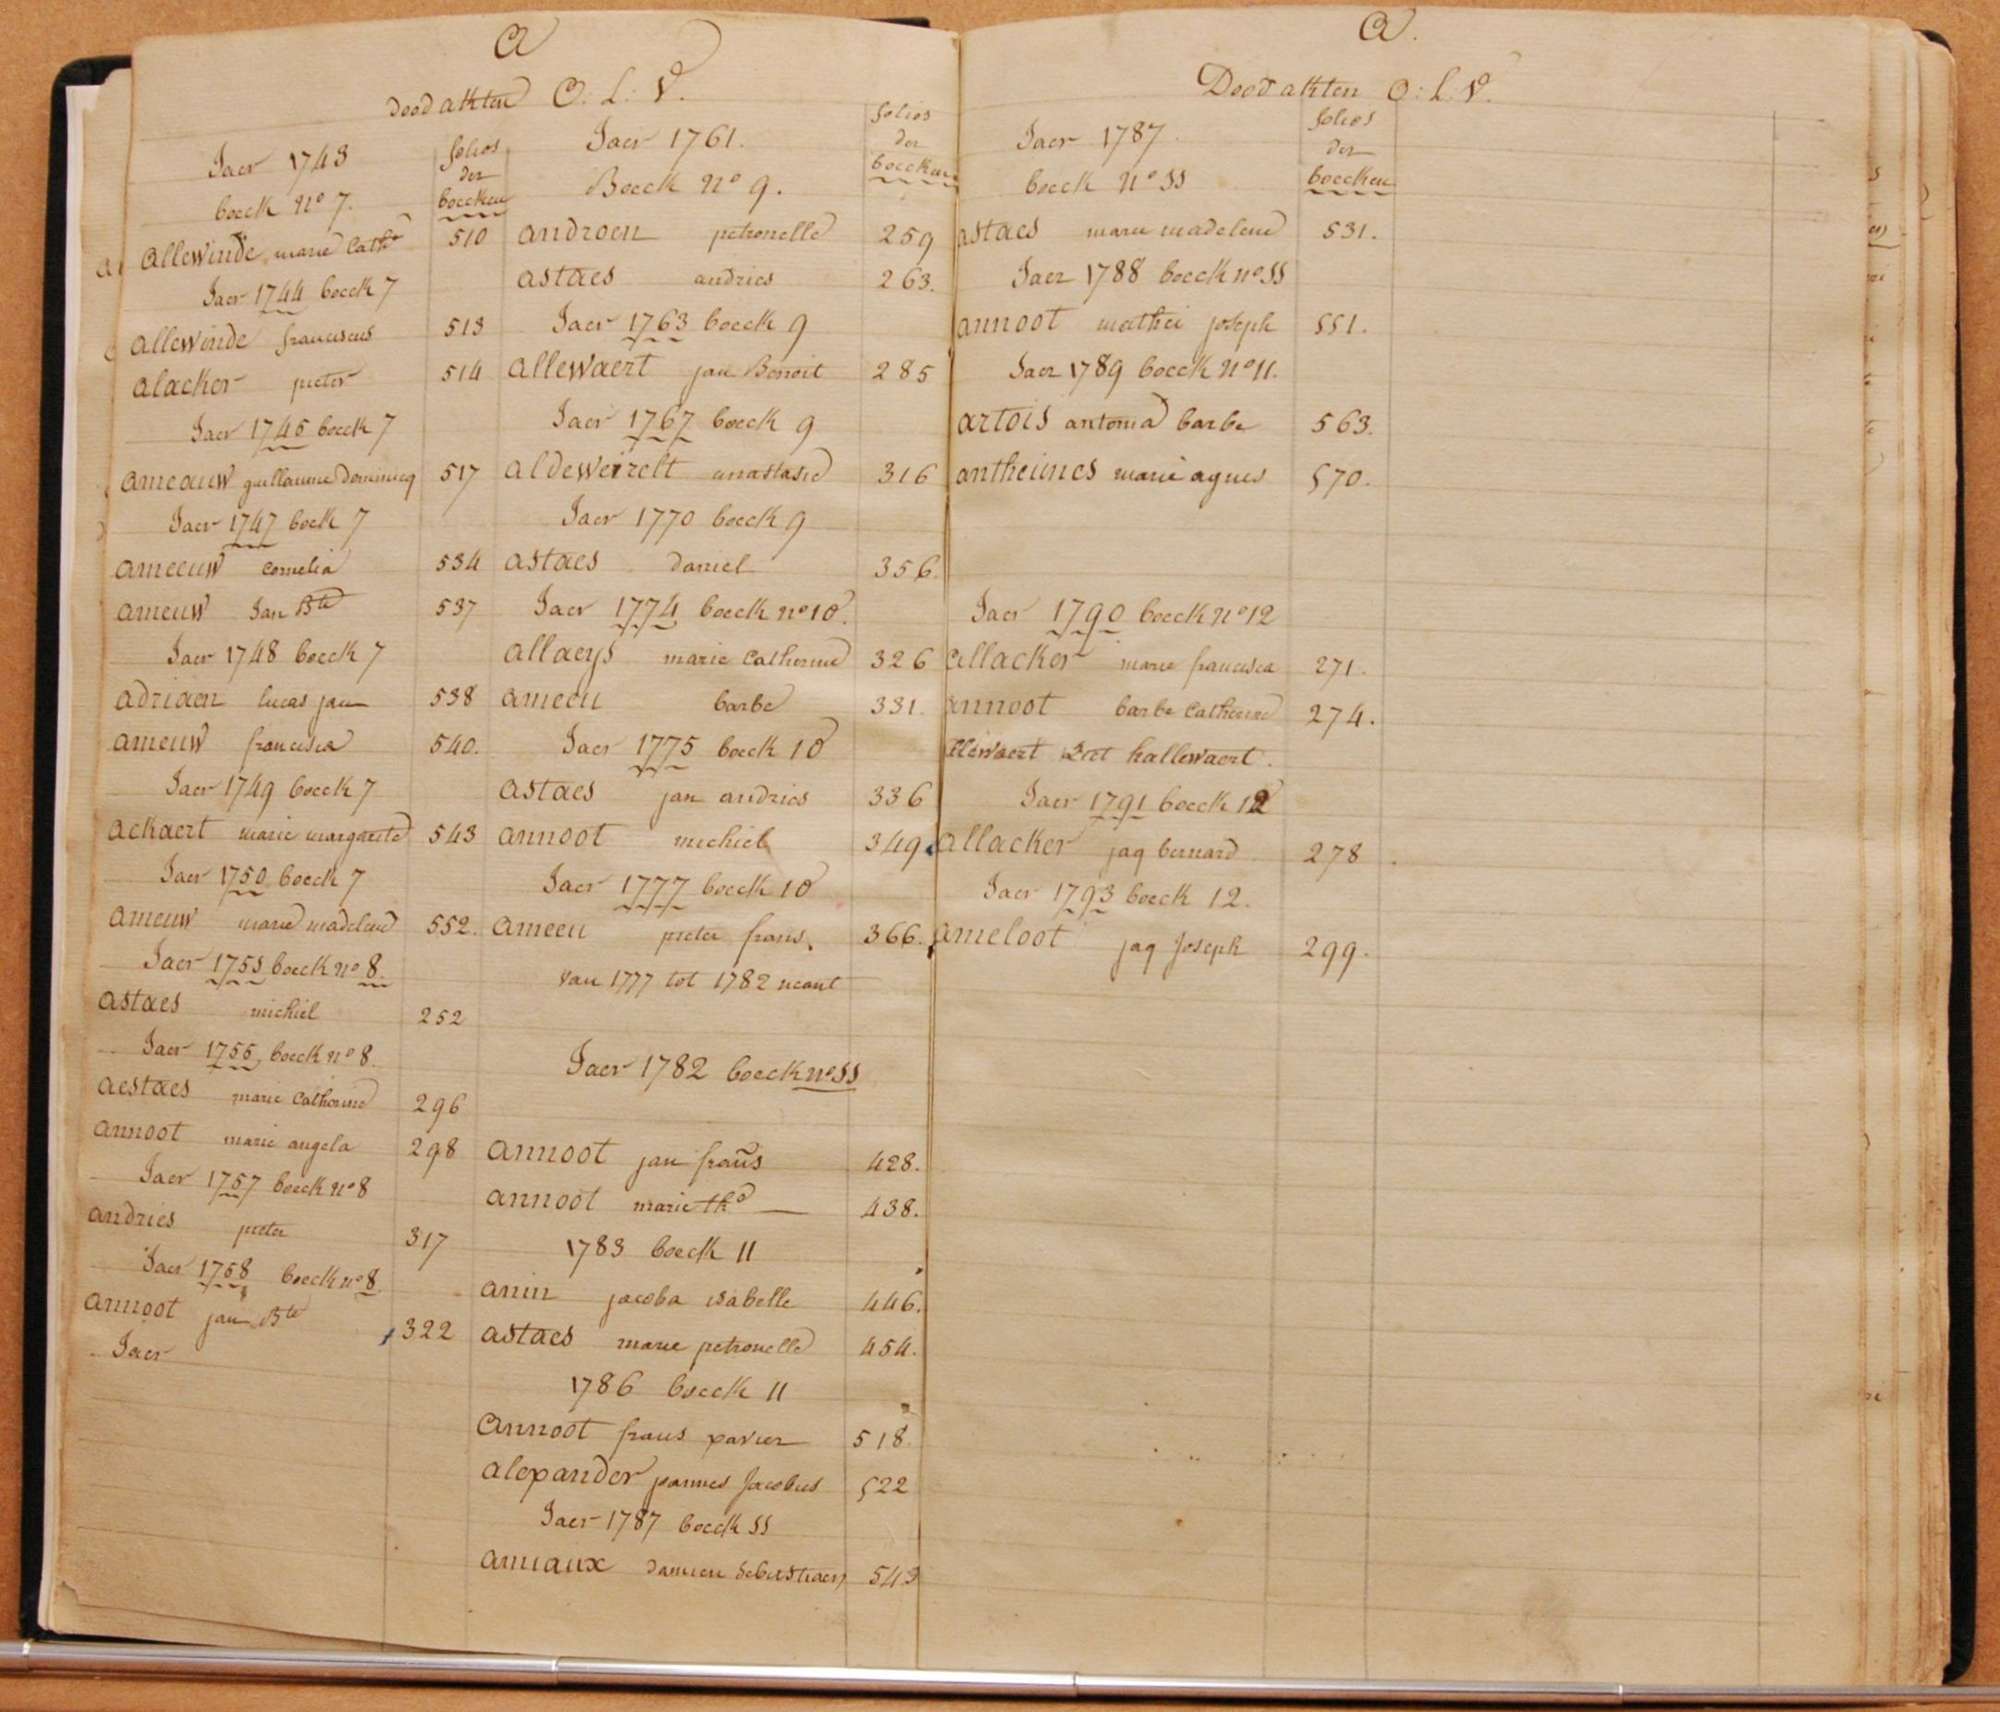 A
Doodakten O: L: V.
Jaer 1743
boeck No 7.
folios
der
boecken
allewinde marie Cathe 510
Jaer 1744 boeck 7
allewinde franciscus 513
alacker pieter 514
Jaer 1745 boeck 7
ameauw guillaume Dominicq 517
Jaer 1747 boek 7
ameeuw Cornelia 534
ameuw Jan Bte 537
Jaer 1748 boeck 7
adriaen lucas jan 538
ameuw francisca 540.
Jaer 1749 boeck 7
ackaert marie margarite 543
Jaer 1750 boeck 7
ameuw marie madelene 552.
Jaer 1751 boeck no 8.
astaes michiel 252
Jaer 1755 boeck no 8.
aestaes marie Catherine 296
annoot marie angela 298
Jaer 1757 boeck no 8
andries pieter 317
Jaer 1758 boeck no 8.
annoot jan Bte 322
Jaer
Jaer 1761.
Boeck No 9.
folios
der
boecken
androen petronelle 259
astaes andries 263.
Jaer 1763 boeck 9
allewaert jan Benoit 285
Jaer 1767 boeck 9
aldeweirelt anastasie 316
Jaer 1770 boeck 9
astaes Daniel 356.
Jaer 1774 boeck no 10.
allaeys marie Catherine 326
ameeu barbe 331.
Jaer 1775 boeck 10
astaes jan andries 336
annoot michiel 349.
Jaer 1777 boeck 10
ameeu pieter frans. 366.
van 1777 tot 1782 neant
Jaer 1782 boeck no 11
annoot jan frans 428.
annoot marie the 438.
1783 boeck 11
anin jacoba isabelle 446.
astaes marie petronelle 454.
1786 boeck 11
annoot frans xavier 518.
alexander joannes Jacobus 522
Jaer 1787 boeck 11
amiaux damien sebastiaen 543
A.
Doodakten O: L: V.
Jaer 1787.
boeck No 11
folios
der
boecken
astaes marie madelene 531.
Jaer 1788 boeck no 11
annoot mathei joseph 551.
Jaer 1789 boeck No 11.
artois antonia barbe 563.
antheunes marie agnes 570.
Jaer 1790 boeck No 12
allacker marie francisca 271.
annoot barbe Catherine 274.
allewaert ziet hallewaert.
Jaer 1791 boeck 12
allacker jaq bernard 278
Jaer 1793 boeck 12.
ameloot jaq Joseph 299.